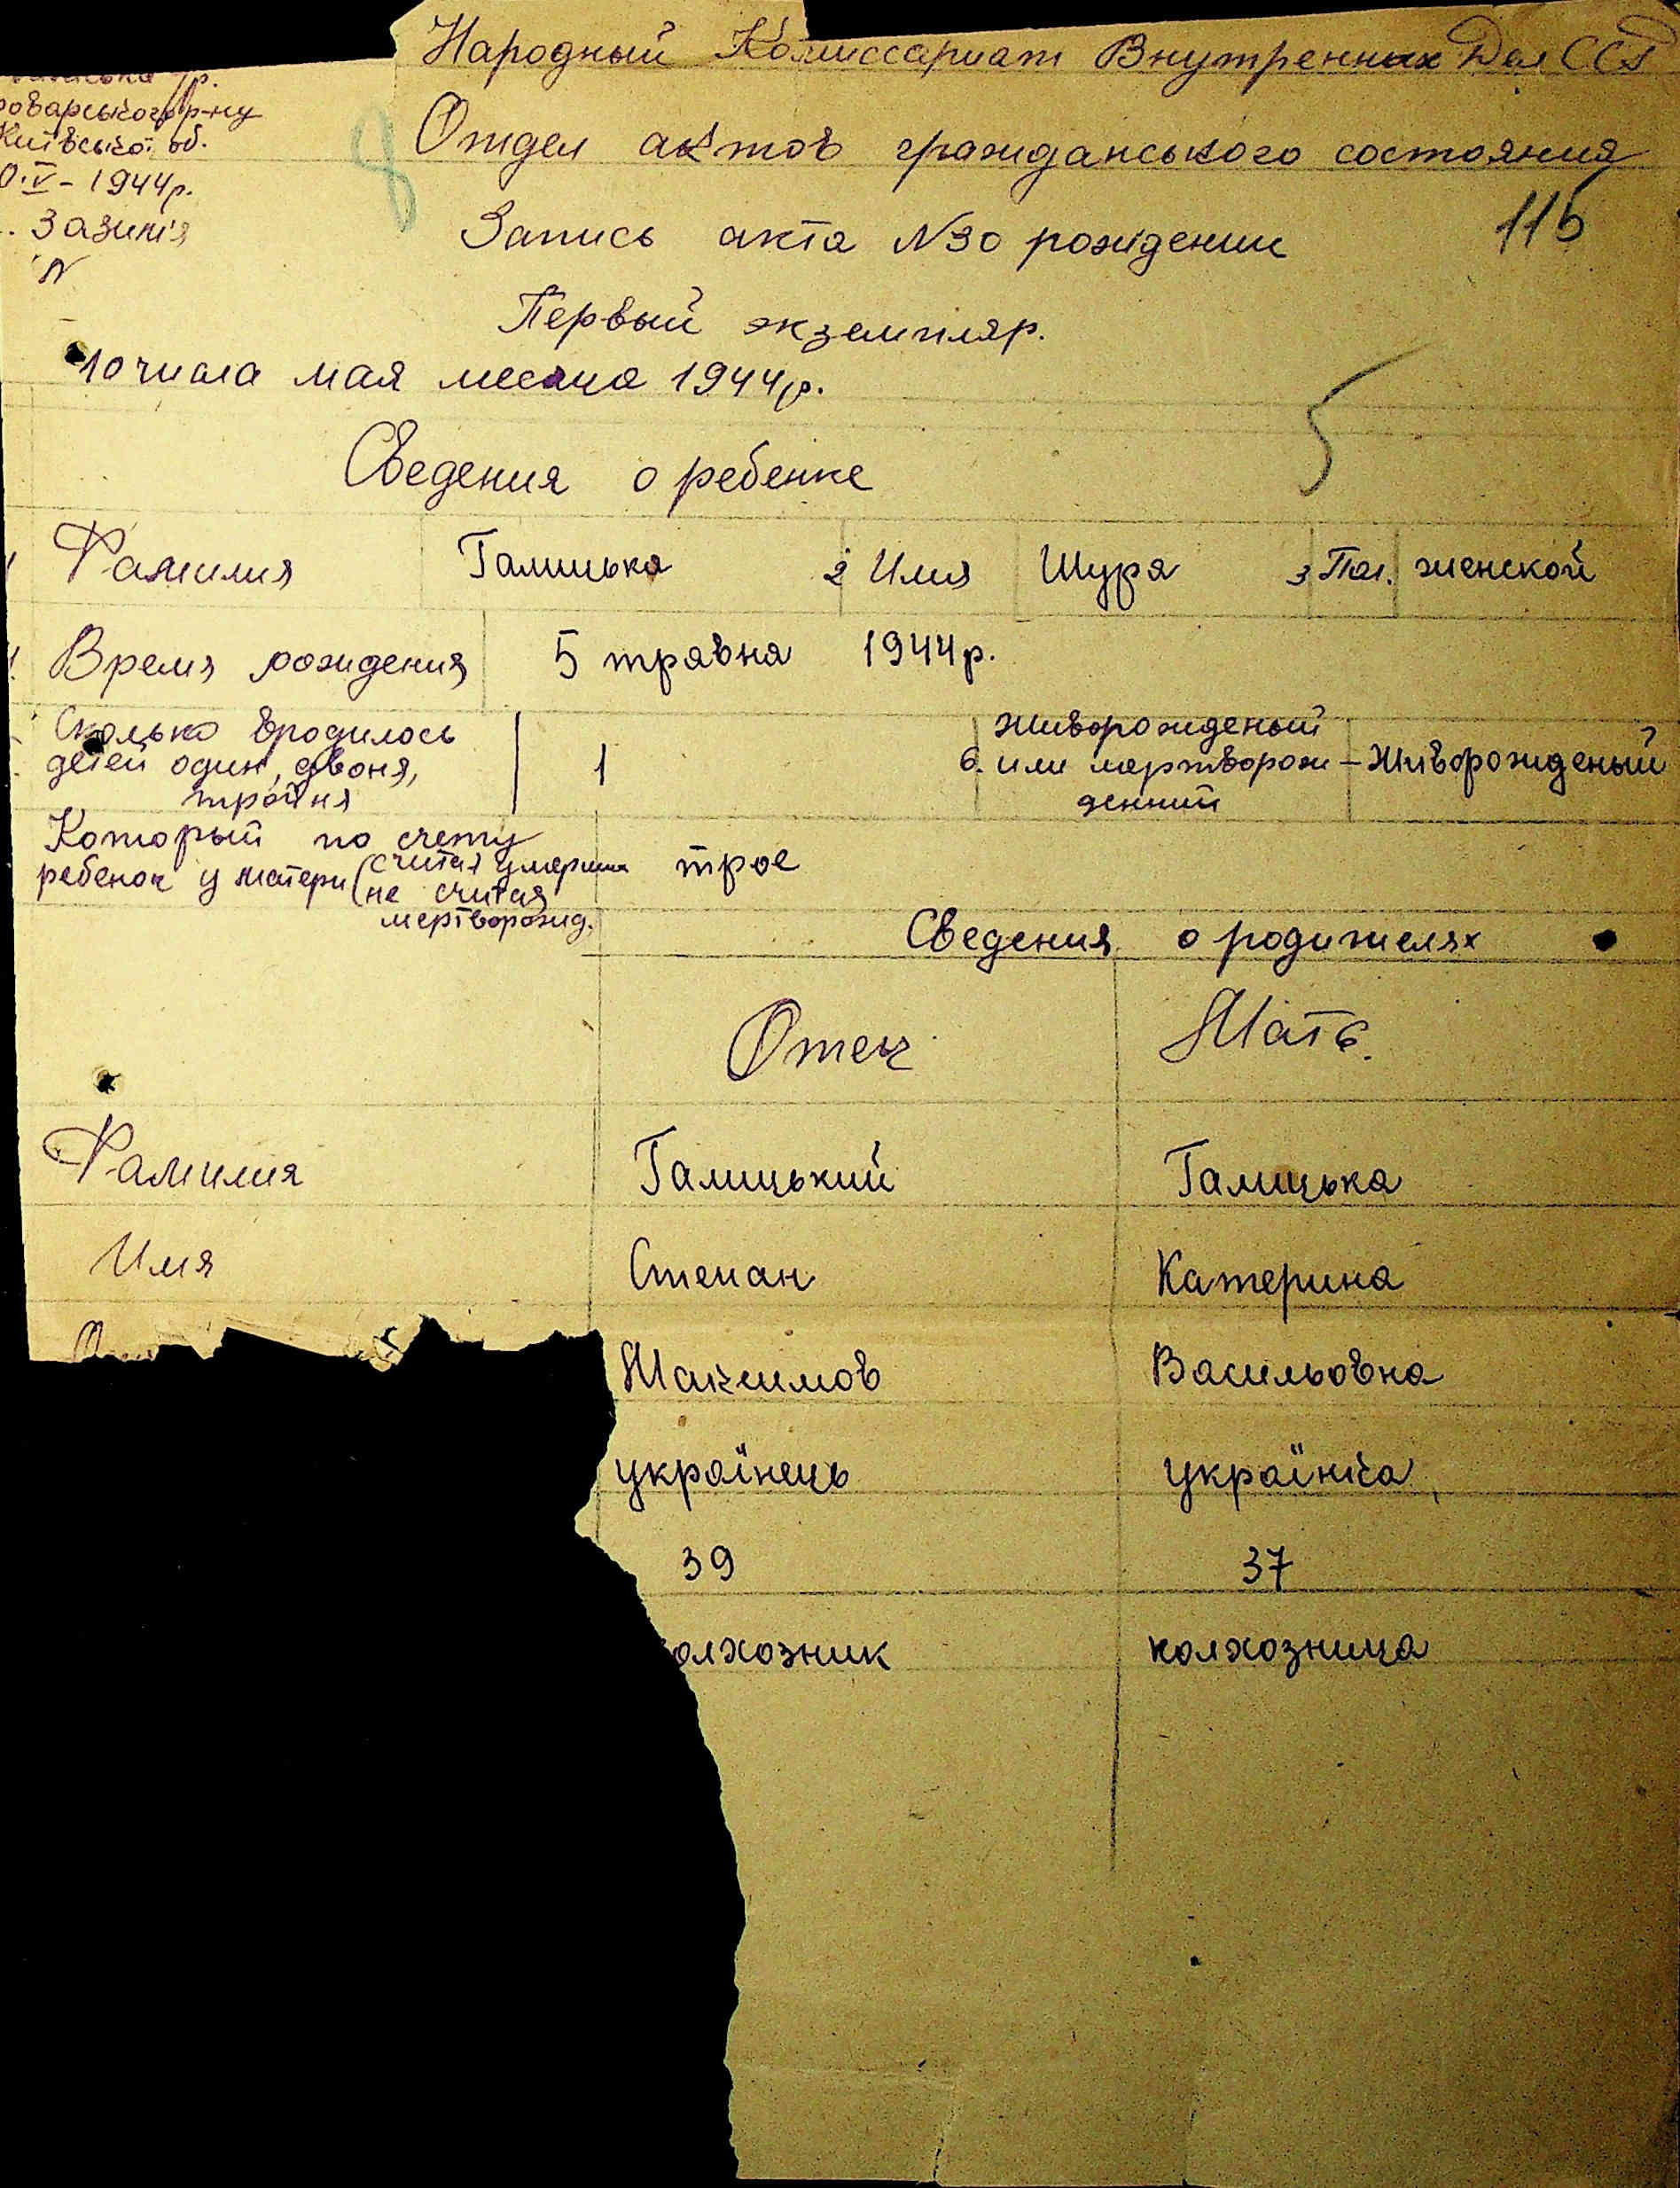 Народный Комиссариат Внутренних Дел ССР
р.
роварського р-ну
Київської об.
0.V-1944р.
Зазим'я
N
Отдел актов гражданського состояния
8
116
Запись акта N30 рождении
Первый экземпляр.
10 числа мая месяца 1944р.
5
Сведения о ребенке
Фамилия Галицька 2 Имя Шура 3 Пол. женской
Время рождения 5 травня 1944р.
Сколько вродилось детей один, двоня, тройня 1 6. живорожденый или мертворожденний - Живорожденый
Который по счету ребенок у матери (считая умерших не считая мертворожд. трое
Сведения о родителях
Отец Мать.
Фамилия Галицький Галицька
Имя Степан Катерина
Максимов Васильовна
українець українка
39 37
олхозник колхозница